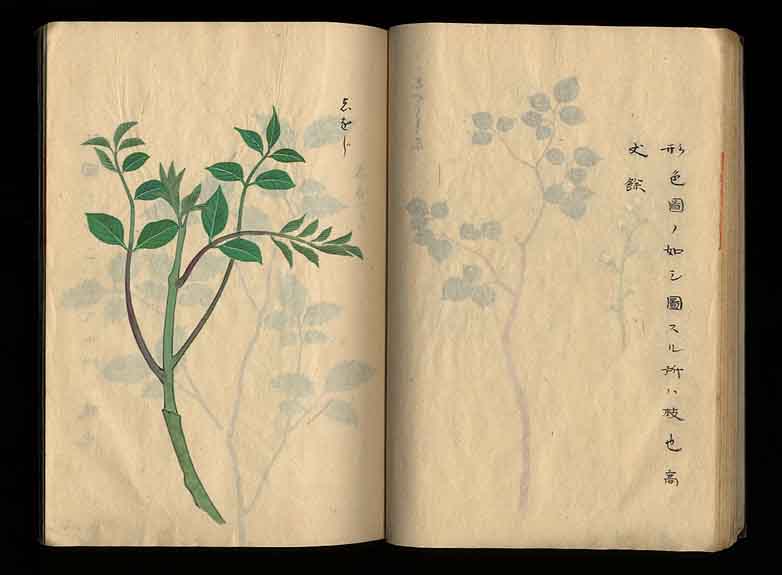 形色圖ノ如シ圖スル所ハ枝也高
丈餘
しをじ